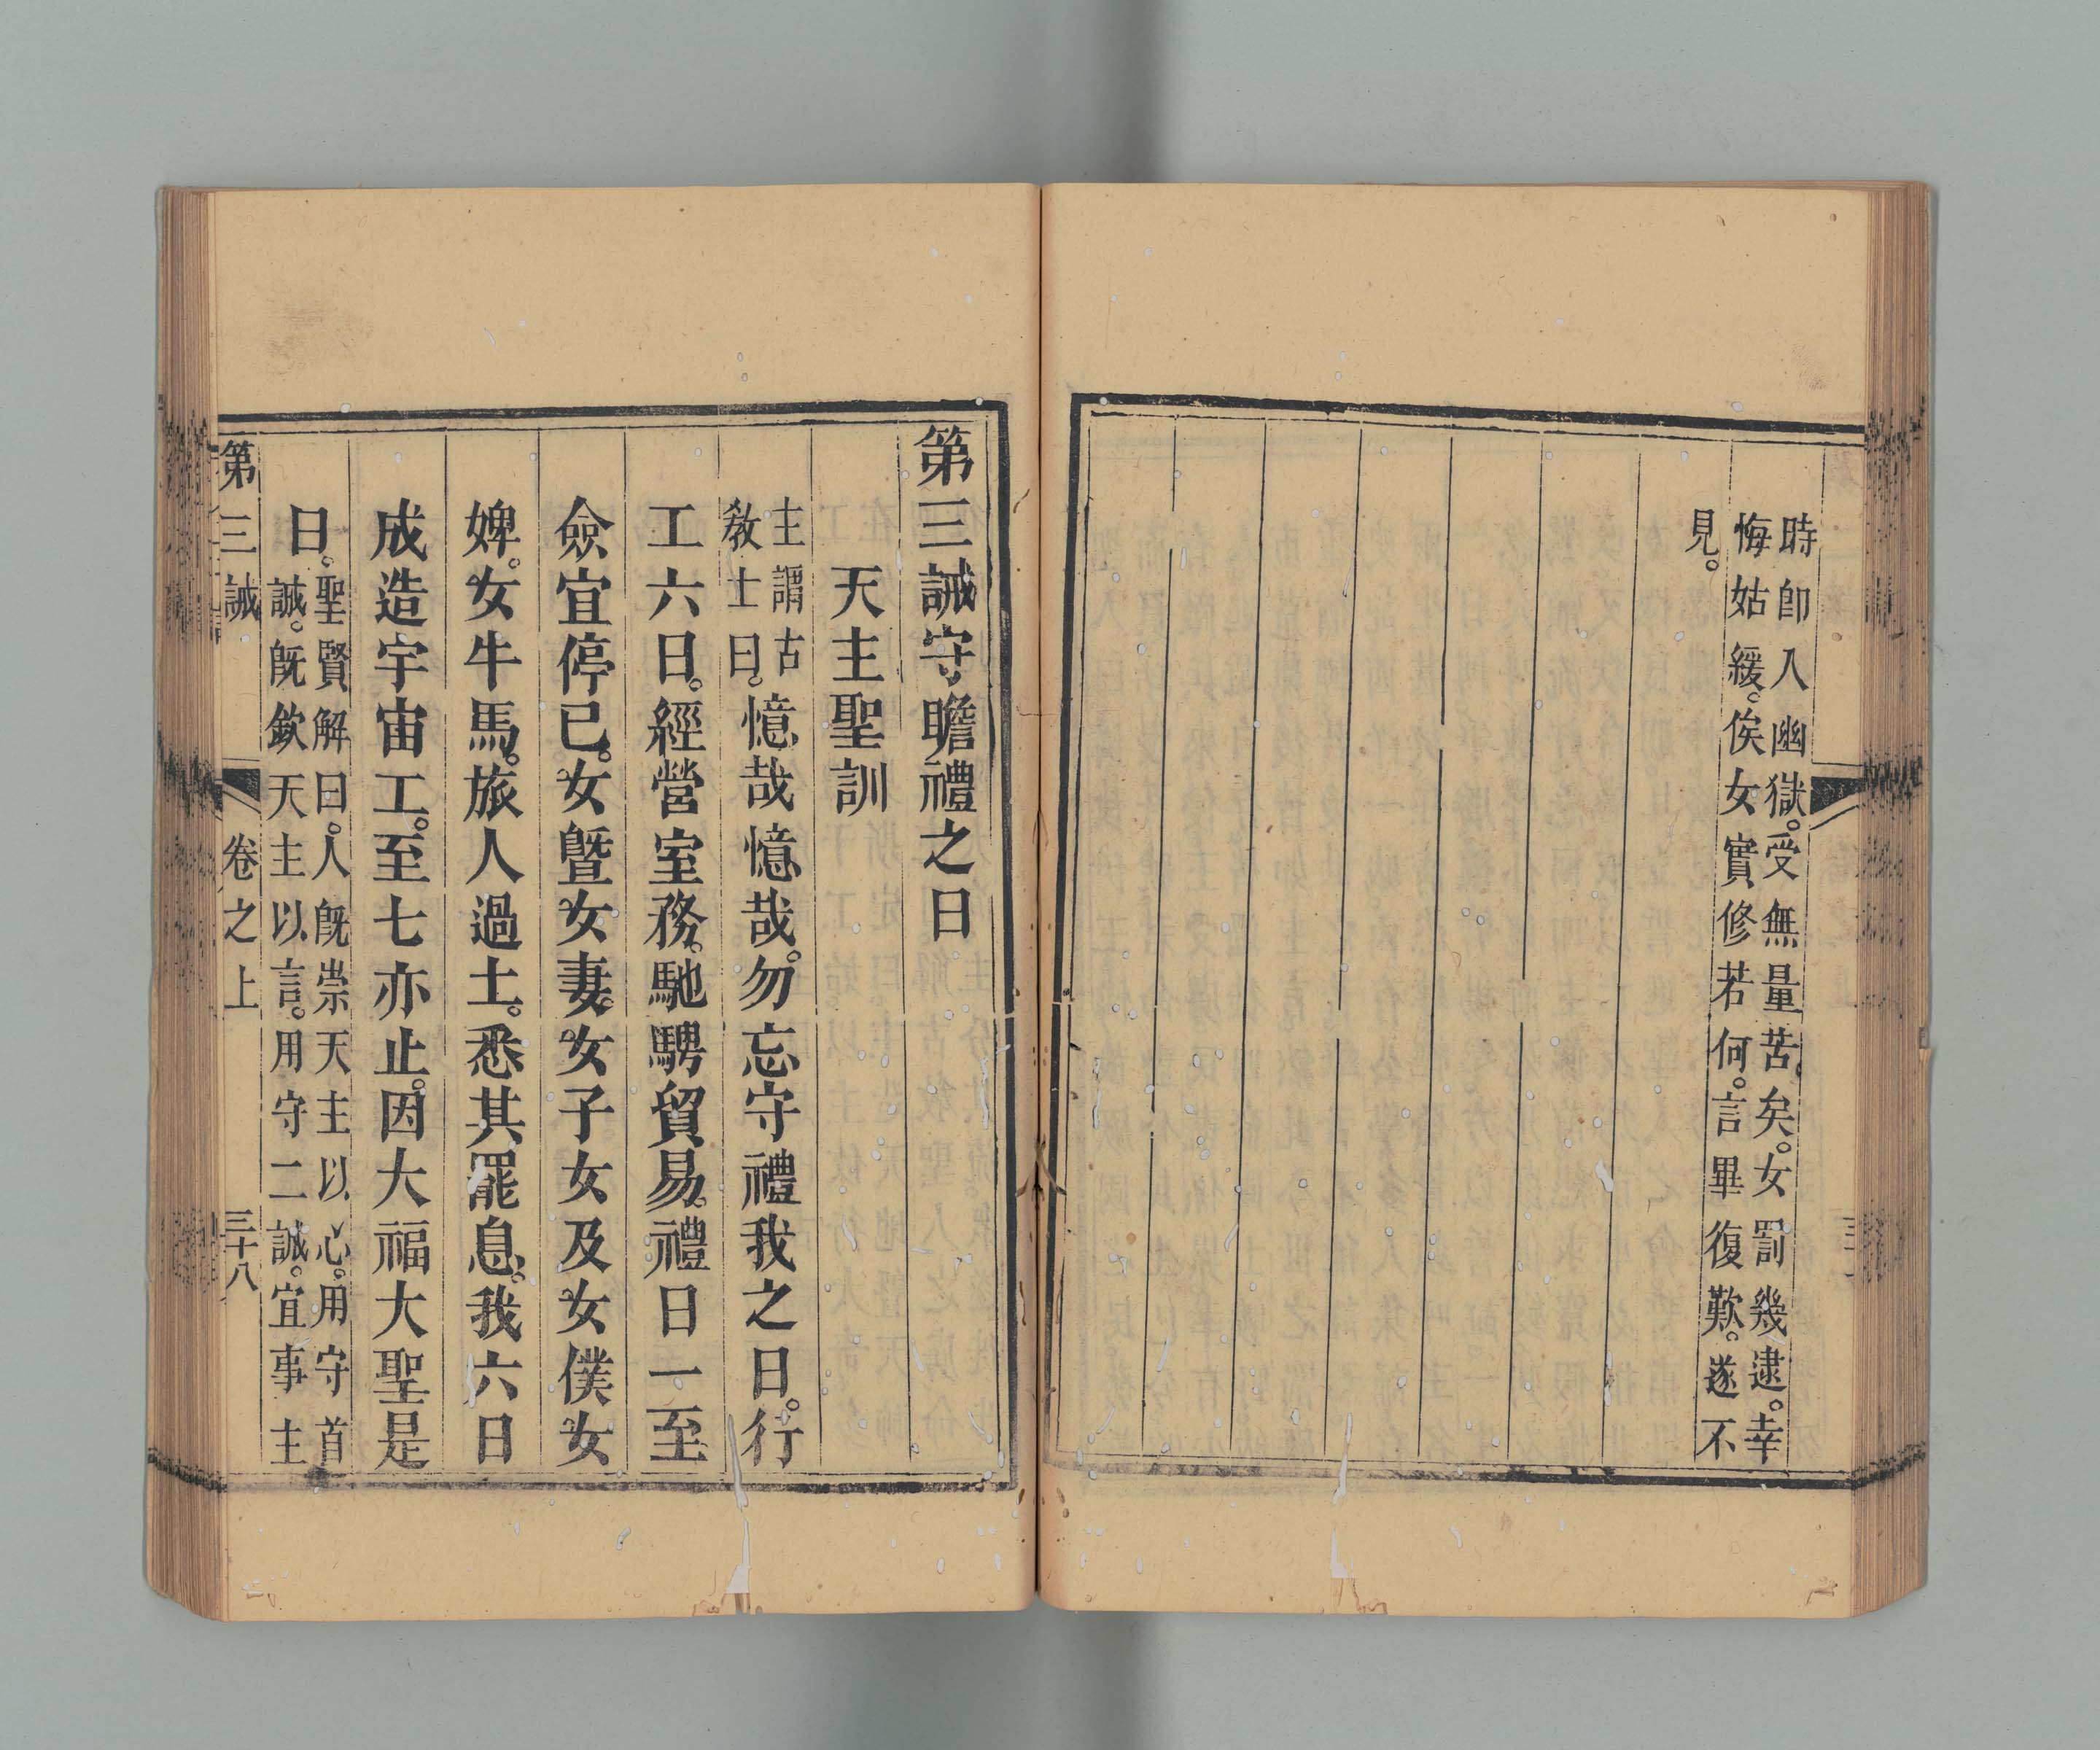 時卽入幽獄。受無量苦矣。女罰幾逮。幸
悔姑緩。俟女實修若何。言畢復歎。遂不
見。
第三誡守瞻禮之日
天主聖訓
主謂古
敎士曰。
憶哉憶哉。勿忘守禮我之日。行
工六日。經營室務。馳騁貿易。禮日一至
僉宜停已。女曁女妻。女子女及女僕女
婢。女牛馬。旅人過土。悉其罷息。我六日
成造宇宙工。至七亦止。因大福大聖是
日。
聖賢解曰。人旣崇天主以心。用守首
誡。旣欽天主以言。用守二誡。宜事主
第三誡 卷之上 三十八